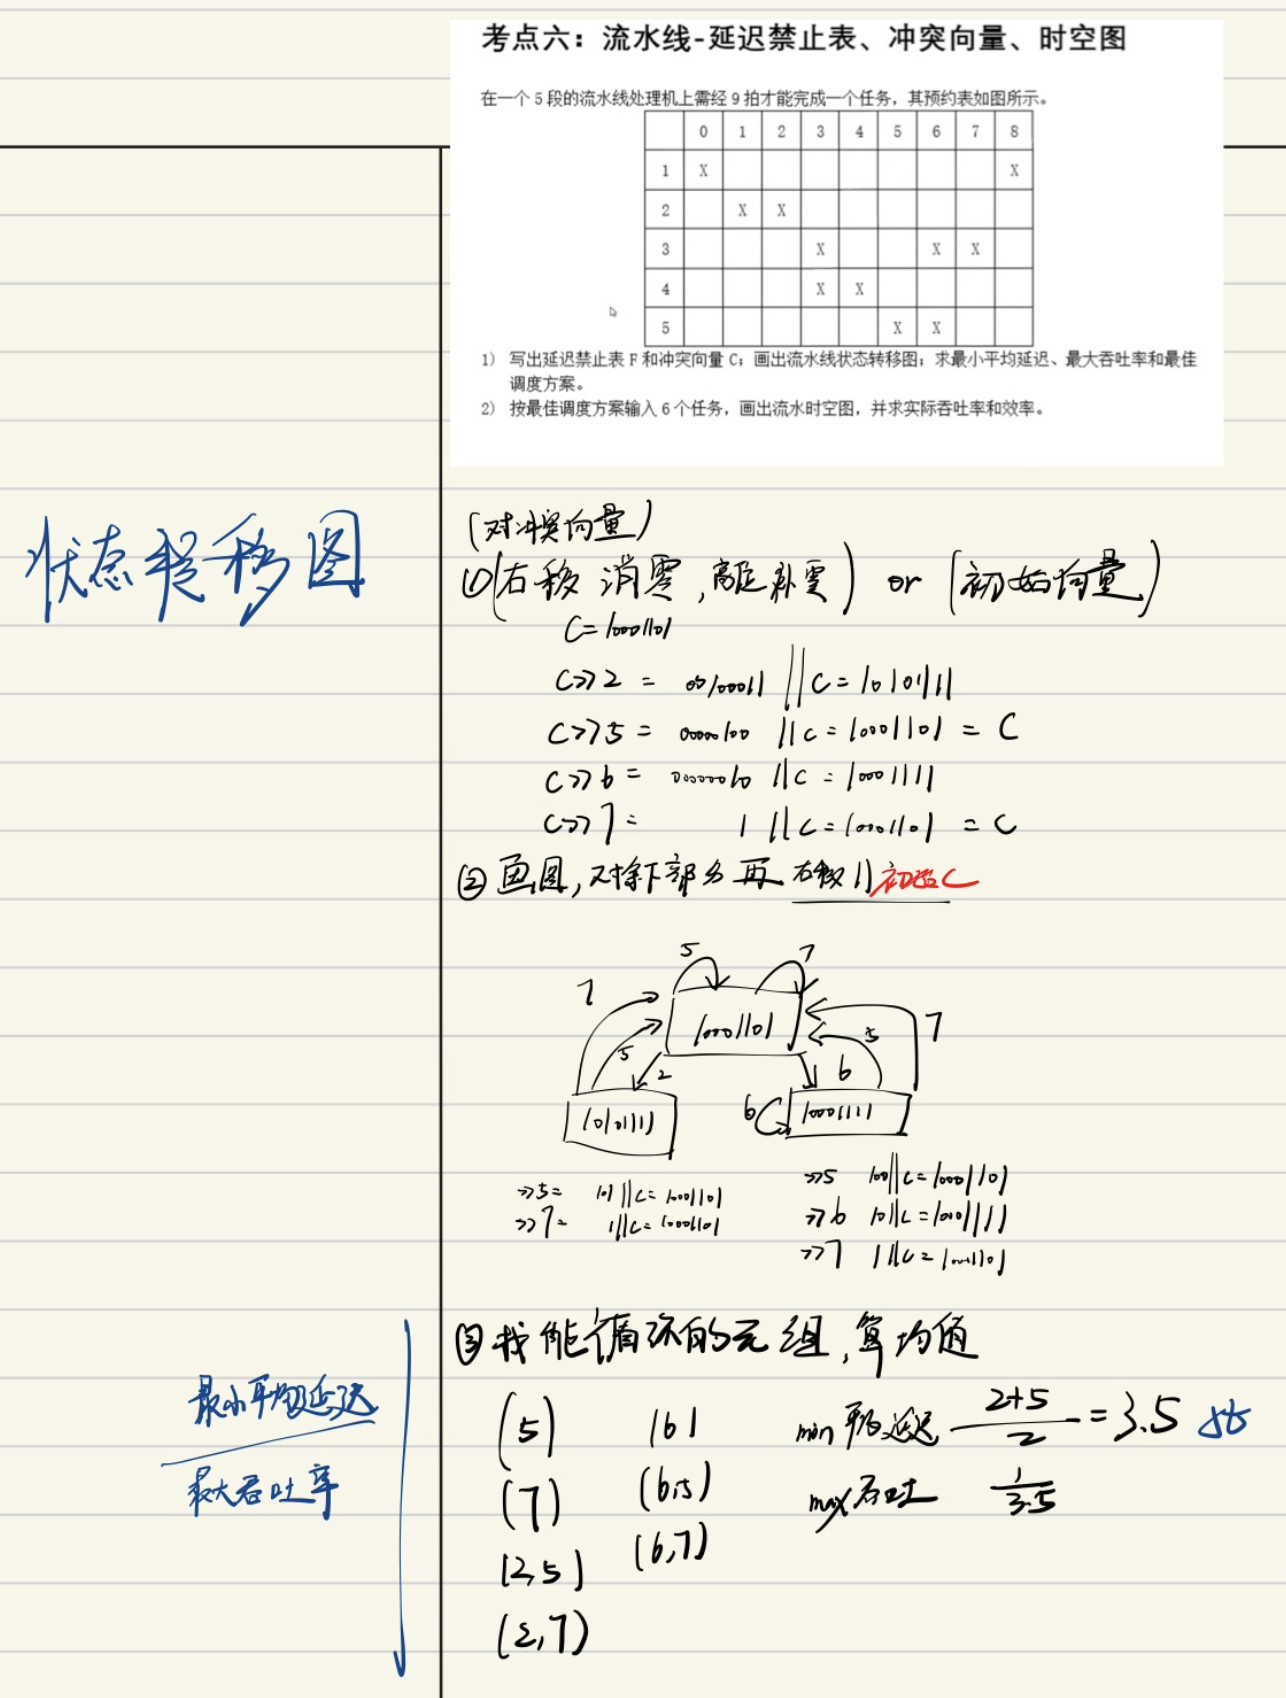 考点六：流水线-延迟禁止表、冲突向量、时空图
在一个 5 段的流水线处理机上需经 9 拍才能完成一个任务，其预约表如图所示。
0 1 2 3 4 5 6 7 8
1 X X
2 X X
3 X X X
4 X X
5 X X
1） 写出延迟禁止表 F 和冲突向量 C；画出流水线状态转移图；求最小平均延迟、最大吞吐率和最佳
调度方案。
2） 按最佳调度方案输入 6 个任务，画出流水时空图，并求实际吞吐率和效率。
状态转移图
(对冲突向量)
①(右移 消零,高位补零) or (初始向量)
C=10001101
C>>2 = 00100011 || C = 10101111
C>>5 = 0000100 || C = 10001101 = C
C>>6 = 00000010 || C = 10001111
C>>7 = 1 || C = 10001101 = C
② 画图,对除下部分再 右移 || 初始C
5 7
7 10001101 7
5 2 6 5
10101111 6 10001111
>>5= 101 || C = 10001101
>>7= 1 || C = 10001101
>>5 100 || C = 10001101
>>6 10 || C = 10001111
>>7 1 || C = 10001101
③ 找能循环的元组,算均值
最小平均延迟
最大吞吐率
(5) (6) min 平均延迟 2+5/2 = 3.5 拍
(7) (6,5) max 吞吐 1/3.5
(2,5) (6,7)
(2,7)